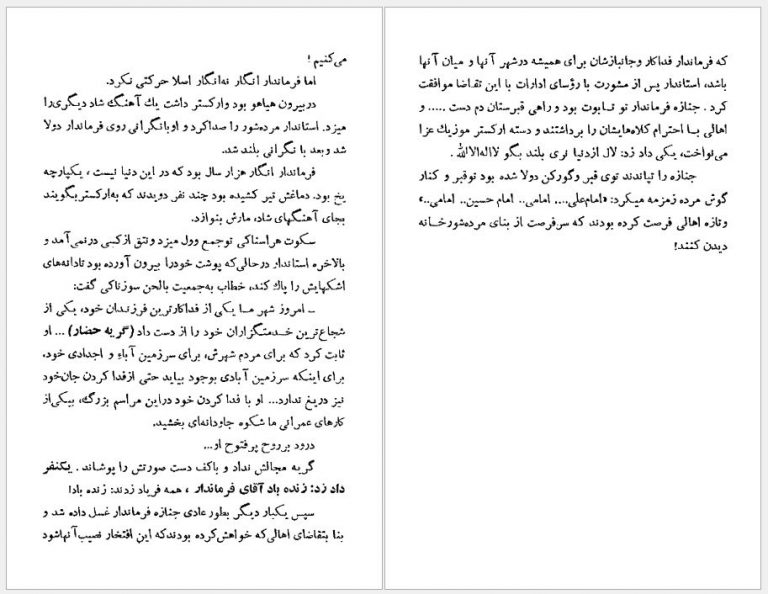 می‌کنیم !
اما فرماندار انگار نه‌انگار اصلا حرکتی نکرد.
در بیرون هیاهو بود وارکستر داشت یك آهنگ شاد دیگری را
میزد. استاندار مرده‌شور را صدا کرد و او با نگرانی روی فرماندار دولا
شد و بعد با نگرانی بلند شد.
فرماندار انگار هزار سال بود که در این دنیا نیست ، یکپارچه
یخ بود. دماغش تیر کشیده بود چند نفر دویدند که به‌ارکستر بگویند
بجای آهنگهای شاد، مارش بنوازد.
سکوت هراسناکی تو جمع وول میزد و نتق از کسی در نمی‌آمد و
بالاخره استاندار در حالی‌که پوشت خود را بیرون آورده بود تا دانه‌های
اشکهایش را پاك کند، خطاب به‌جمعیت با لحن سوزناکی گفت:
ـ امروز شهر مـا یکی از فداکارترین فرزندان خود، یکی از
شجاع‌ترین خدمتگزاران خود را از دست داد (گریه حضار) ... او
ثابت کرد که برای مردم شهرش، برای سرزمین آباء و اجدادی خود،
برای اینکه سرزمین آبادی بوجود بیاید حتی از فدا کردن جان‌خود
نیز دریغ ندارد... او با فدا کردن خود در این مراسم بزرگ، بیکی‌از
کارهای عمرانی ما شکوه جاودانه‌ای بخشید.
درود بر روح پرفتوح او...
گریه مجالش نداد و با کف دست صورتش را پوشاند . یکنفر
داد زد: زنده باد آقای فرماندار ، همه فریاد زدند: زنده باد!
سپس یکبار دیگر بطور عادی جنازه فرماندار غسل داده شد و
بنا بتقاضای اهالی‌که خواهش‌کرده بودندکه این افتخار نصیب‌آنهاشود
که فرماندار فداکار وجانبازشان برای همیشه در شهر آنها و میان آنها
باشد، استاندار پس از مشورت با رؤسای ادارات با این تقاضا موافقت
کرد . جنازه فرماندار تو تـابوت بود و راهی قبرستان دم دست ..... و
اهالی بـا احترام کلاه‌هایشان را برداشتند و دسته ارکستر موزیك عزا
می‌نواخت، یکی داد زد: لال از دنیا نری بلند بگو لااله‌الاالله .
جنازه را تپاندند توی قبر وگورکن دولا شده بود توقبر و کنار
گوش مرده زمزمه میکرد: «امام‌علی.... امامی.. امام حسین.. امامی..»
و تازه اهالی فرصت کرده بودند که سرفرصت از بنای مرده‌شورخـانه
دیدن کنند!